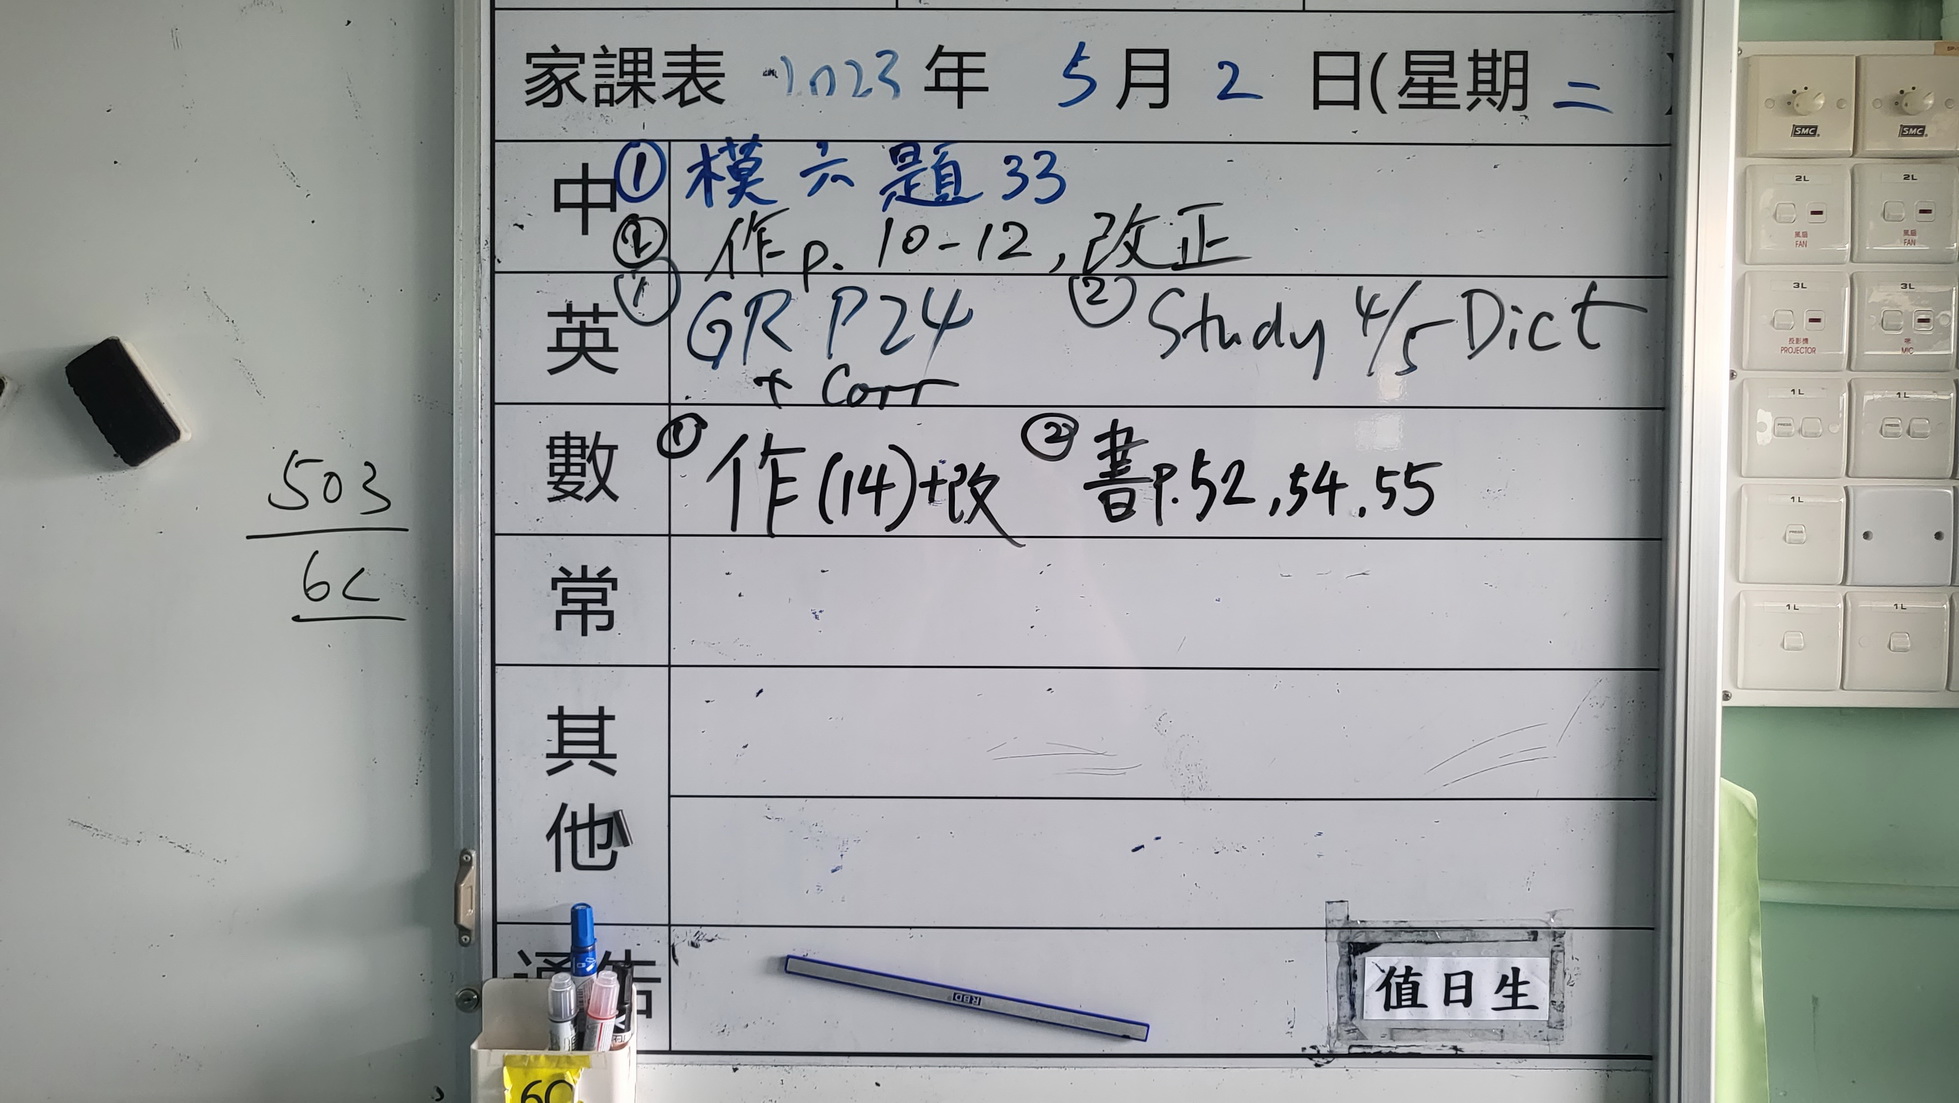 家課表 2023年 5月2日(星期二)
中 ① 模六題33
② 作p. 10-12, 改正
英 ① GR P24 ② Study 4/5 Dict
+ Corr
數 ① 作(14)+改 ② 書P.52,54.55
常
其他
通告
值日生
503
6C
6C
SMC
SMC
2L
風扇
FAN
2L
風扇
FAN
3L
投影機
PROJECTOR
3L
MIC
1L
1L
1L
1L
1L